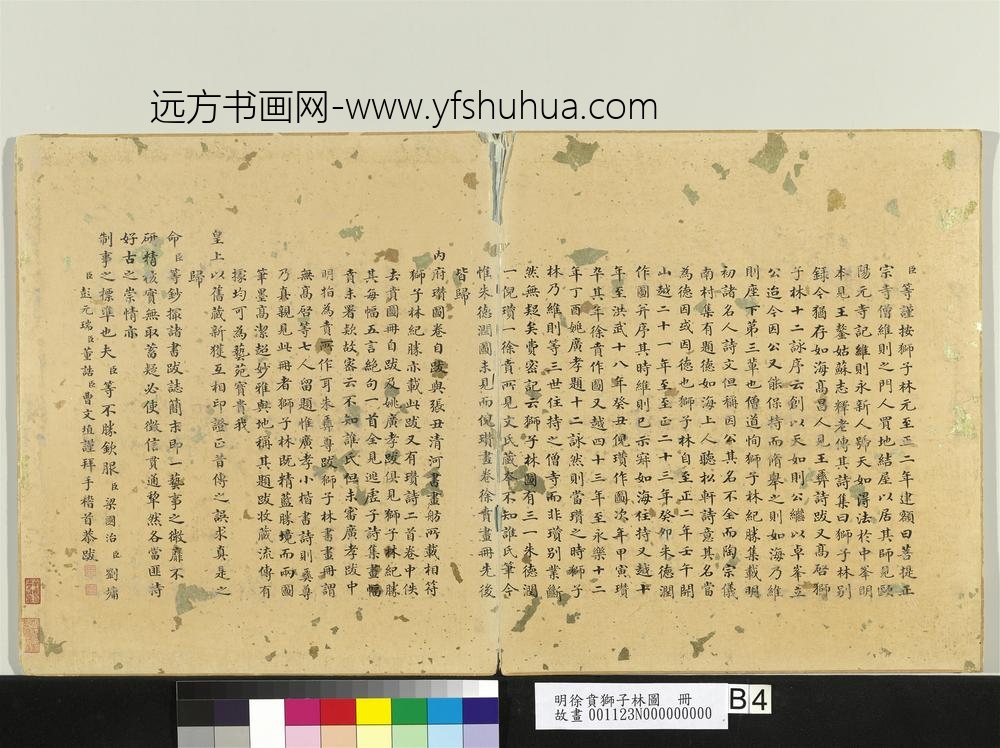 远方书画网-www.yfshuhua.com
臣等謹按獅子林元至正二年建額曰菩提正
宗寺僧維則之門人買地結屋以居其師見歐
陽元寺記維則永新人號天如得法於中峯明
本見王鏊姑蘇志釋老傳其詩集曰獅子林別
錄今猶存如海高昌人見王彝詩跋又高啓獅
子林十二詠序云創以天如則公繼以卓峯立
公迨今因公又能保持而脩舉之則如海乃維
則座下第三輩也僧道恂獅子林紀勝集載明
初諸名人詩文但稱因公其名不全而陶宗儀
南村集有題德如海上人聽松軒詩意其名當
為德因或因德也獅子林自至正二年壬午開
山越二十一年至至正二十三年癸卯朱德潤
作圖并序其時維則已示寂如海住持又越十
年至洪武十八年癸丑倪瓚作圖次年甲寅瓚
卒其年徐賁作圖又越四十三年至永樂十二
年丁酉姚廣孝題十二詠然則當瓚之時獅子
林乃維則等三世住持之僧寺而非瓚別業斷
然無疑矣費密記云獅子林圖有三一朱德潤
一倪瓚一徐賁所見文氏藏本不知誰氏筆今
惟朱德潤圖未見而倪瓚畫卷徐賁畫冊先後
皆歸
內府瓚圖卷自跋與張丑清河書畫舫所載相符
獅子林紀勝亦載此跋又有瓚詩二首卷中佚
去賁圖冊自跋及姚廣孝跋俱見獅子林紀勝
其每幅五言絕句一首全見逃虛子詩集畫幅
賁未署款故密云不知誰氏但未審廣孝跋中
明指為賁所作耳朱彝尊跋獅子林書畫冊謂
無高啓等七人留題惟廣孝小楷書詩則彝尊
乃真親見此冊者獅子林既精藍勝境而兩圖
筆墨高潔超妙雅與地稱其題跋收藏流傳有
據均可為藝苑寶貴我
皇上以舊藏新獲互相印證正昔傳之誤求真是之
歸
命臣等鈔撮諸書跋誌簡末即一藝事之微靡不
研精覈實無取蓄疑必使徵信貫通犂然各當匪特
好古之崇情亦
制事之標準也夫臣等不勝欽服臣梁國治臣劉墉
臣彭元瑞臣董誥臣曹文埴謹拜手稽首恭跋
明徐賁獅子林圖 冊
故畫001123N000000000
B4